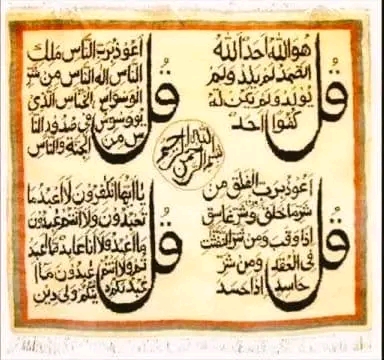 قُل
هُوَ اللهُ أَحَدٌ اللهُ
الصَّمَدُ لَمْ يَلِدْ وَلَمْ
يُولَدْ وَلَمْ يَكُنْ لَهُ
كُفُوًا أَحَدٌ
قُل
أَعُوذُ بِرَبِّ النَّاسِ مَلِكِ
النَّاسِ إِلَهِ النَّاسِ مِنْ شَرِّ
الْوَسْوَاسِ الْخَنَّاسِ الَّذِي
يُوَسْوِسُ فِي صُدُورِ النَّا
سِ مِنَ الْجِنَّةِ وَالنَّاسِ
بسم الله الرحمن الرحيم
قُل
أَعُوذُ بِرَبِّ الْفَلَقِ مِن
شَرِّ مَا خَلَقَ وَمِنْ شَرِّ غَاسِقٍ
إِذَا وَقَبَ وَمِنْ شَرِّ النَّفَّثَتِ
فِي الْعُقَدِ وَمِنْ شَرِّ
حَاسِدٍ إِذَا حَسَدَ
قُل
يَا أَيُّهَا الْكَفِرُونَ لَا أَعْبُدُ مَا
تَعْبُدُونَ وَلَا أَنْتُمْ عَبِدُونَ
مَا أَعْبُدُ وَلَا أَنَا عَابِدٌ مَا عَبَد
تُمْ وَلَا أَنْتُمْ عَبِدُونَ مَا أَ
عْبُدُ لَكُمْ دِينُكُمْ وَلِيَ دِينِ